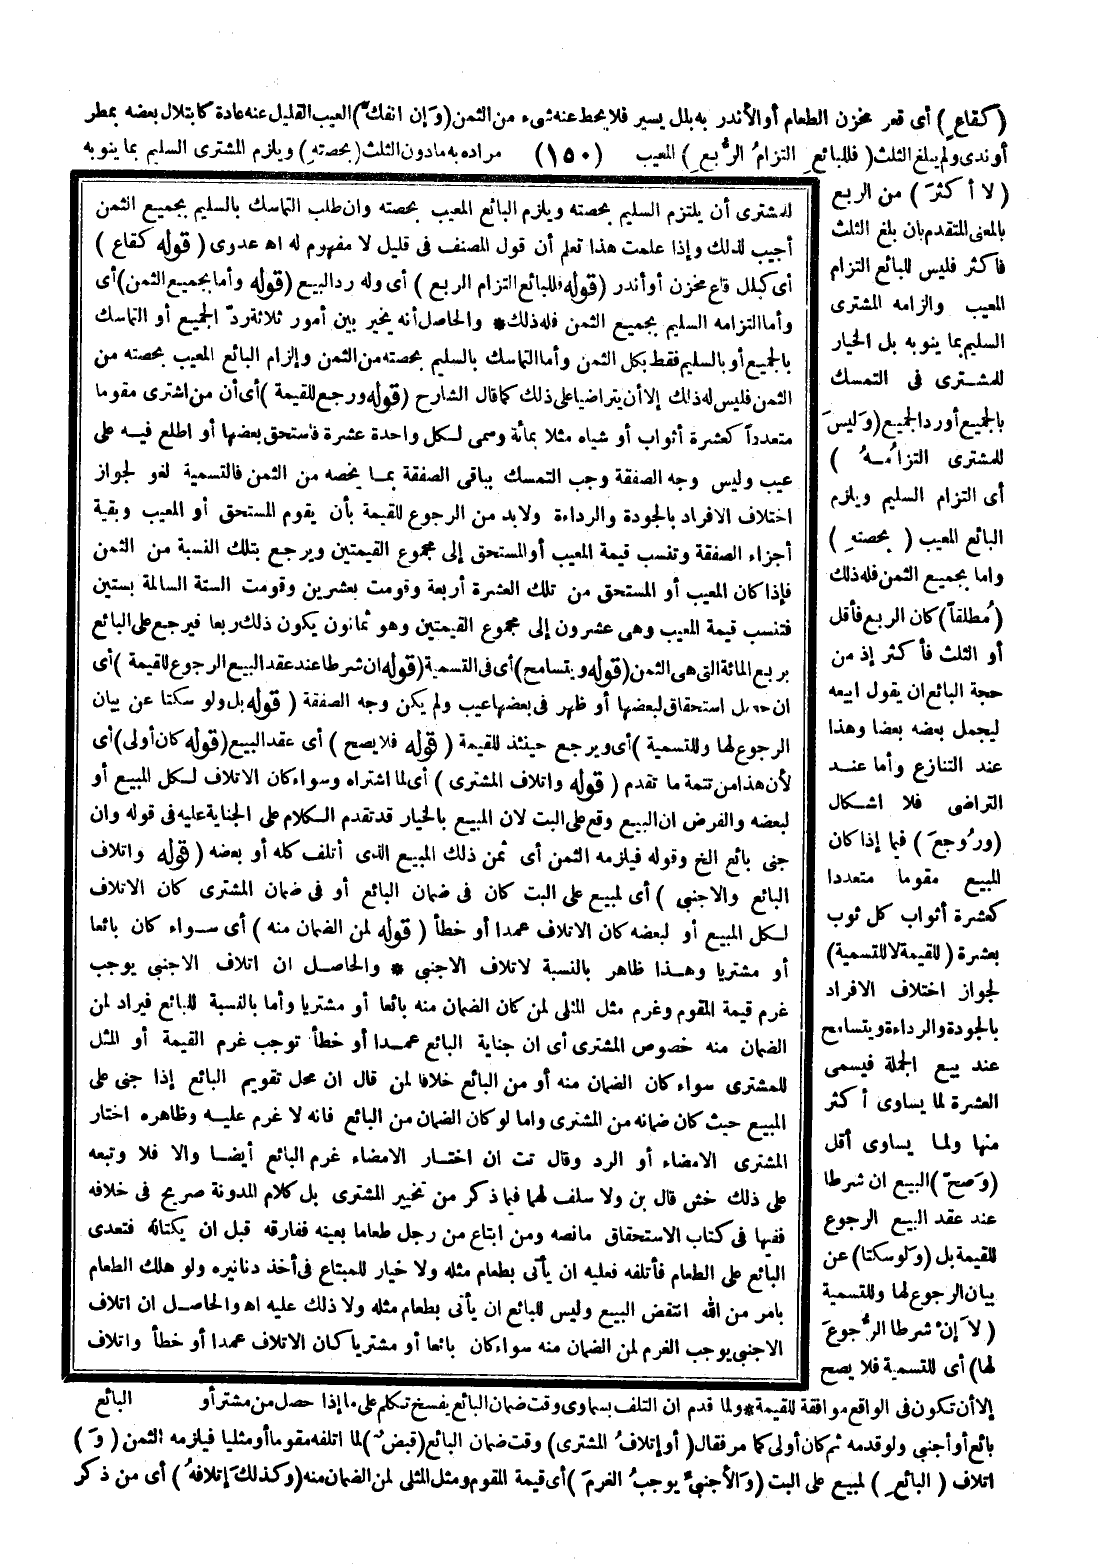 (كقاع) أى قعر مخزن الطعام أوالأندر به بلل يسير فلايحط عنه شىء من الثمن (وَإن انفك) العيب القليل عنه عادة كابتلال بعضه بمطر
أوندى ولم يبلغ الثلث (فللبائعِ التزامُ الرُّبعِ) المعيب (١٥٠) مراده به مادون الثلث (بحصتهِ) ويلزم المشترى السليم بما ينوبه
(لا أكثرَ) من الربع
بالمعنى المتقدم بأن بلغ الثلث
فأكثر فليس للبائع التزام
المعيب والزامه المشترى
السليم بما ينوبه بل الخيار
للمشترى فى التمسك
بالجميع أورد الجميع (وَليسَ
للمشترى التزامُهُ)
أى التزام السليم ويلزم
البائع المعيب (بحصتهِ)
واما بجميع الثمن فله ذلك
(مُطلقاً) كان الربع فأقل
أو الثلث فأكثر إذ من
حجة البائع ان يقول ابيعه
ليحمل بعضه بعضا وهذا
عند التنازع وأما عند
التراضى فلا اشكال
(ورُوجعَ) فيما إذا كان
المبيع مقوما متعددا
كعشرة أثواب كل ثوب
بعشرة (للقيمة لاللتسمية)
لجواز اختلاف الافراد
بالجودة والرداءة ويتسامح
عند بيع الجملة فيسمى
العشرة لما يساوى أكثر
منها ولما يساوى أقل
(وَصحّ) البيع ان شرطا
عند عقد البيع الرجوع
للقيمة بل (وَلو سكتا) عن
بيان الرجوع لها وللتسمية
(لاَ إنْ شرطا الرُّجوعَ
لها) أى للتسمية فلا يصح
للمشترى أن يلتزم السليم بحصته ويلزم البائع المعيب بحصته وان طلب التماسك بالسليم بجميع الثمن
أجيب لذلك وإذا علمت هذا تعلم أن قول المصنف فى قليل لا مفهوم له اه عدوى (قوله كقاع)
أى كبلل قاع مخزن أوأندر (قوله فللبائع التزام الربع) أى وله رد البيع (قوله وأما بجميع الثمن) أى
وأما التزامه السليم بجميع الثمن فله ذلك* والحاصل أنه يخير بين أمور ثلاثة ردّ الجميع أو التماسك
بالجميع أو بالسليم فقط بكل الثمن وأما التماسك بالسليم بحصته من الثمن وإلزام البائع المعيب بحصته من
الثمن فليس له ذلك إلا أن يتراضيا على ذلك كما قال الشارح (قوله ورجع للقيمة) أى أن من اشترى مقوما
متعدداً كعشرة أثواب أو شياه مثلا بمائة وسمى لكل واحدة عشرة فاستحق بعضها أو اطلع فيه على
عيب وليس وجه الصفقة وجب التمسك بباقى الصفقة بما يخصه من الثمن فالتسمية لغو لجواز
اختلاف الافراد بالجودة والرداءة ولابد من الرجوع للقيمة بأن يقوم المستحق أو المعيب وبقية
أجزاء الصفقة وتنسب قيمة المعيب أوالمستحق إلى مجموع القيمتين ويرجع بتلك النسبة من الثمن
فإذا كان المعيب أو المستحق من تلك العشرة أربعة وقومت بعشرين وقومت الستة السالمة بستين
فتنسب قيمة المعيب وهى عشرون إلى مجموع القيمتين وهو ثمانون يكون ذلك ربعا فيرجع على البائع
بربع المائة التى هى الثمن (قوله ويتسامح) أى فى التسمية (قوله ان شرطا عند عقد البيع الرجوع للقيمة) أى
ان حصل استحقاق لبعضها أو ظهر فى بعضها عيب ولم يكن وجه الصفقة (قوله بل ولو سكتا عن بيان
الرجوع لها وللتسمية) أى ويرجع حينئذ للقيمة (قوله فلا يصح) أى عقد البيع (قوله كان أولى) أى
لأن هذا من تتمة ما تقدم (قوله واتلاف المشترى) أى لما اشتراه وسواء كان الاتلاف لكل المبيع أو
لبعضه والفرض ان البيع وقع على البت لان المبيع بالخيار قد تقدم الكلام على الجناية عليه فى قوله وان
جنى بائع الخ وقوله فيلزمه الثمن أى ثمن ذلك المبيع الذى أتلف كله أو بعضه (قوله واتلاف
البائع والاجنبى) أى لمبيع على البت كان فى ضمان البائع أو فى ضمان المشترى كان الاتلاف
لكل المبيع أو لبعضه كان الاتلاف عمدا أو خطأ (قوله لمن الضمان منه) أى سواء كان بائعا
أو مشتريا وهذا ظاهر بالنسبة لاتلاف الاجنبى * والحاصل ان اتلاف الاجنبى يوجب
غرم قيمة المقوم وغرم مثل المثلى لمن كان الضمان منه بائعا أو مشتريا وأما بالنسبة للبائع فيراد لمن
الضمان منه خصوص المشترى أى ان جناية البائع عمدا أو خطأ توجب غرم القيمة أو المثل
للمشترى سواء كان الضمان منه أو من البائع خلافا لمن قال ان محل تقويم البائع إذا جنى على
المبيع حيث كان ضمانه من المشترى واما لو كان الضمان من البائع فانه لا غرم عليه وظاهره اختار
المشترى الامضاء أو الرد وقال تت ان اختار الامضاء غرم البائع أيضا والا فلا وتبعه
على ذلك خش قال بن ولا سلف لهما فيما ذكر من تخيير المشترى بل كلام المدونة صريح فى خلافه
ففيها فى كتاب الاستحقاق مانصه ومن ابتاع من رجل طعاما بعينه ففارقه قبل ان يكتاله فتعدى
البائع على الطعام فأتلفه فعليه ان يأتى بطعام مثله ولا خيار للمبتاع فى أخذ دنانيره ولو هلك الطعام
بامر من الله انتقض البيع وليس للبائع ان يأتى بطعام مثله ولا ذلك عليه اه والحاصل ان اتلاف
الاجنبى يوجب الغرم لمن الضمان منه سواء كان بائعا أو مشتريا كان الاتلاف عمدا أو خطأ واتلاف
إلا أن تكون فى الواقع موافقة للقيمة* ولما قدم ان التلف بسماوى وقت ضمان البائع يفسخ تكلم على ما إذا حصل من مشتر أو البائع
بائع أو أجنبى ولو قدمه ثم كان أولى كما مر فقال (أو إتلافُ المشترى) وقت ضمان البائع (قبضٌ) لما اتلفه مقوما أو مثليا فيلزمه الثمن (وَ)
اتلاف (البائعِ) لمبيع على البت (وَالأجنبىِّ يوجبُ الغرمَ) أى قيمة المقوم ومثل المثلى لمن الضمان منه (وكذلكَ إتلافهُ) أى من ذكر